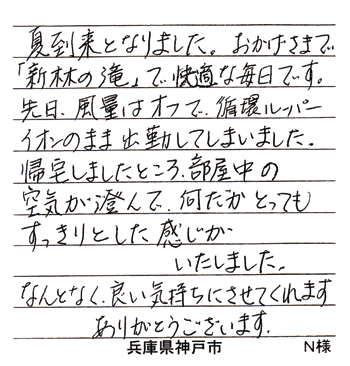 夏到来となりました。おかげさまで
「新林の滝」で快適な毎日です。
先日、風量はオフで、循環ルーパー
イオンのまま出勤してしまいました。
帰宅しましたところ、部屋中の
空気が澄んで、何だかとっても
すっきりとした感じが
いたしました。
なんとなく、良い気持ちにさせてくれます
ありがとうございます.
兵庫県神戸市 N様